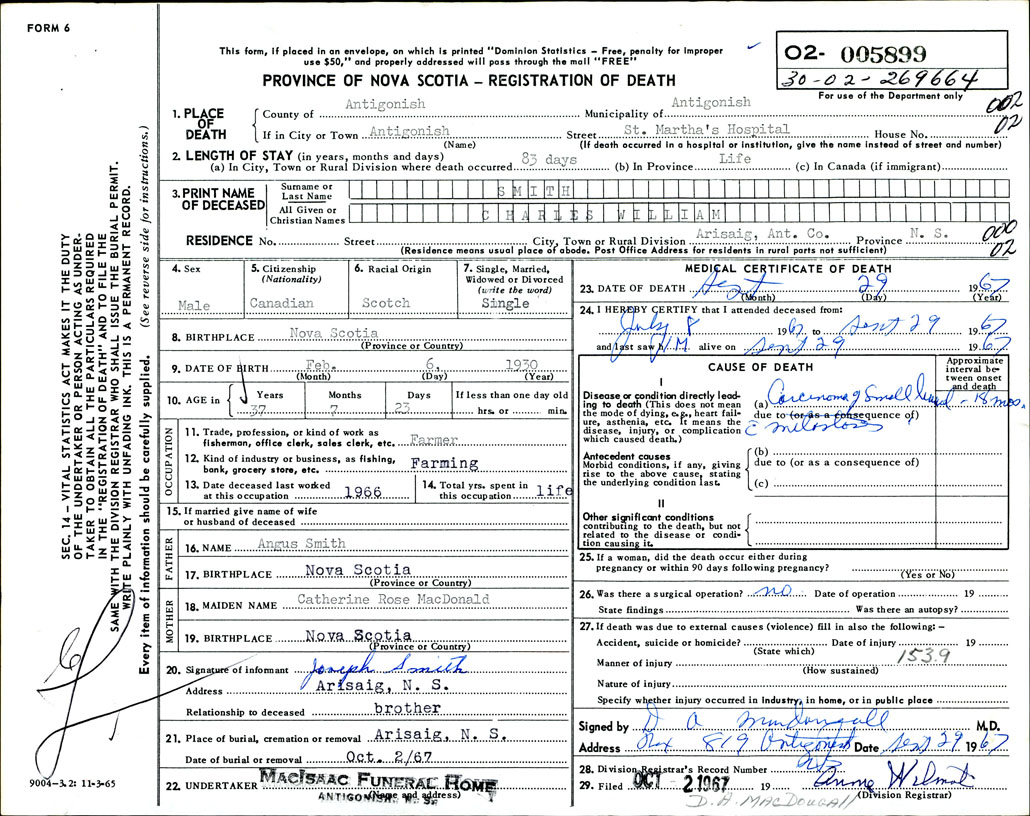 FORM 6
This form, if placed in an envelope, on which is printed "Dominion Statistics – Free, penalty for improper
use $50," and properly addressed will pass through the mail "FREE"
PROVINCE OF NOVA SCOTIA – REGISTRATION OF DEATH
02- 005899
30-02-269664
For use of the Department only
002
02
1. PLACE OF DEATH
County of Antigonish Municipality of Antigonish
If in City or Town Antigonish Street St. Martha's Hospital House No.
(Name) (If death occurred in a hospital or institution, give the name instead of street and number)
2. LENGTH OF STAY (in years, months and days)
(a) In City, Town or Rural Division where death occurred 83 days (b) In Province Life (c) In Canada (if immigrant)
3. PRINT NAME OF DECEASED
Surname or Last Name SMITH
All Given or Christian Names CHARLES WILLIAM
RESIDENCE No. Street City, Town or Rural Division Arisaig, Ant. Co. Province N. S.
(Residence means usual place of abode. Post Office Address for residents in rural parts not sufficient)
000
02
4. Sex
Male
5. Citizenship
(Nationality)
Canadian
6. Racial Origin
Scotch
7. Single, Married,
Widowed or Divorced
(write the word)
Single
8. BIRTHPLACE Nova Scotia
(Province or Country)
9. DATE OF BIRTH Feb. 6, 1930
(Month) (Day) (Year)
10. AGE in
Years Months Days If less than one day old
37 7 23 hrs. or min.
OCCUPATION
11. Trade, profession, or kind of work as
fisherman, office clerk, sales clerk, etc. Farmer
12. Kind of industry or business, as fishing,
bank, grocery store, etc. Farming
13. Date deceased last worked
at this occupation 1966
14. Total yrs. spent in
this occupation life
15. If married give name of wife
or husband of deceased
FATHER
16. NAME Angus Smith
17. BIRTHPLACE Nova Scotia
(Province or Country)
MOTHER
18. MAIDEN NAME Catherine Rose MacDonald
19. BIRTHPLACE Nova Scotia
(Province or Country)
20. Signature of informant Joseph Smith
Address Arisaig, N. S.
Relationship to deceased brother
21. Place of burial, cremation or removal Arisaig, N. S.
Date of burial or removal Oct. 2/67
22. UNDERTAKER MACISAAC FUNERAL HOME
ANTIGONISH, N. S.
(Name and address)
MEDICAL CERTIFICATE OF DEATH
23. DATE OF DEATH Sept 29 1967
(Month) (Day) (Year)
24. I HEREBY CERTIFY that I attended deceased from:
July 8 1967 to Sept 29 1967
and last saw h I M alive on Sept 29 1967
CAUSE OF DEATH
Approximate interval between onset and death
I
Disease or condition directly leading to death (This does not mean the mode of dying, e.g., heart failure, asthenia, etc. It means the disease, injury, or complication which caused death.)
(a) Carcinoma of Small bowel - 18 mos.
due to (or as a consequence of)
c̄ metastases
Antecedent causes
Morbid conditions, if any, giving rise to the above cause, stating the underlying condition last.
(b)
due to (or as a consequence of)
(c)
II
Other significant conditions
contributing to the death, but not related to the disease or condition causing it.
25. If a woman, did the death occur either during
pregnancy or within 90 days following pregnancy?
(Yes or No)
26. Was there a surgical operation? no Date of operation 19
State findings Was there an autopsy?
27. If death was due to external causes (violence) fill in also the following: –
Accident, suicide or homicide? Date of injury 19
(State which)
153.9
Manner of injury
(How sustained)
Nature of injury
Specify whether injury occurred in industry, in home, or in public place
Signed by D A MacDougall M.D.
Address Box 819 Antigonish Date Sept 29 1967
NS
28. Division Registrar's Record Number
29. Filed OCT 2 1967 19 Anna Wilmot
(Division Registrar)
D. A. MACDOUGALL
SEC. 14 – VITAL STATISTICS ACT MAKES IT THE DUTY
OF THE UNDERTAKER OR PERSON ACTING AS UNDER-
TAKER TO OBTAIN ALL THE PARTICULARS REQUIRED
IN THE "REGISTRATION OF DEATH" AND TO FILE THE
SAME WITH THE DIVISION REGISTRAR WHO SHALL ISSUE THE BURIAL PERMIT.
WRITE PLAINLY WITH UNFADING INK. THIS IS A PERMANENT RECORD.
Every item of information should be carefully supplied. (See reverse side for instructions.)
9004–3.2: 11-3-65